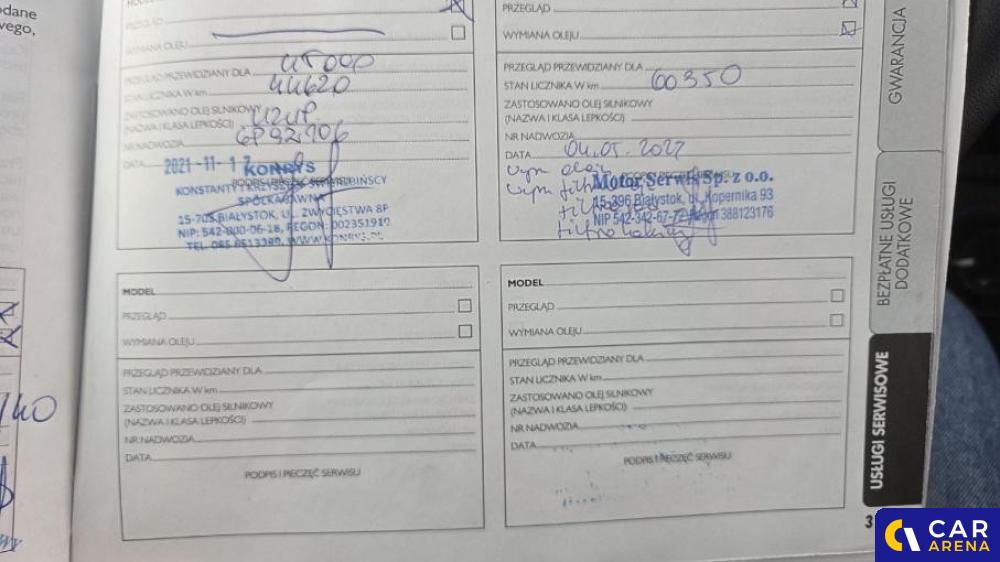 odane
wego,
/140
PRZEGLĄD
WYMIANA OLEJU
PRZEGLĄD PRZEWIDZIANY DLA 45000
STAN LICZNIKA W km 44620
ZASTOSOWANO OLEJ SILNIKOWY
(NAZWA I KLASA LEPKOŚCI)
NR NADWOZIA
DATA 2021-11-17
KONRYS
KONSTANTY I KRZYSZTOF
SPÓŁKA JAWNA
15-703 BIAŁYSTOK, UL. ZWYCIĘSTWA 8F
NIP: 542-800-06-18, REGON: 002351919
TEL. 085 6513389, WWW.KONRYS.PL
PRZEGLĄD
WYMIANA OLEJU
PRZEGLĄD PRZEWIDZIANY DLA
STAN LICZNIKA W km 60350
ZASTOSOWANO OLEJ SILNIKOWY
(NAZWA I KLASA LEPKOŚCI)
NR NADWOZIA
DATA 04.05.2022
wym oleju
Motor Serwis Sp. z o.o.
15-396 Białystok, ul. Kopernika 93
NIP 542-342-67-72 Regon 388123176
MODEL
PRZEGLĄD
WYMIANA OLEJU
PRZEGLĄD PRZEWIDZIANY DLA
STAN LICZNIKA W km
ZASTOSOWANO OLEJ SILNIKOWY
(NAZWA I KLASA LEPKOŚCI)
NR NADWOZIA
DATA
PODPIS I PIECZĘĆ SERWISU
MODEL
PRZEGLĄD
WYMIANA OLEJU
PRZEGLĄD PRZEWIDZIANY DLA
STAN LICZNIKA W km
ZASTOSOWANO OLEJ SILNIKOWY
(NAZWA I KLASA LEPKOŚCI)
NR NADWOZIA
DATA
PODPIS I PIECZĘĆ SERWISU
GWARANCJA
BEZPŁATNE USŁUGI
DODATKOWE
USŁUGI SERWISOWE
3
CAR
ARENA